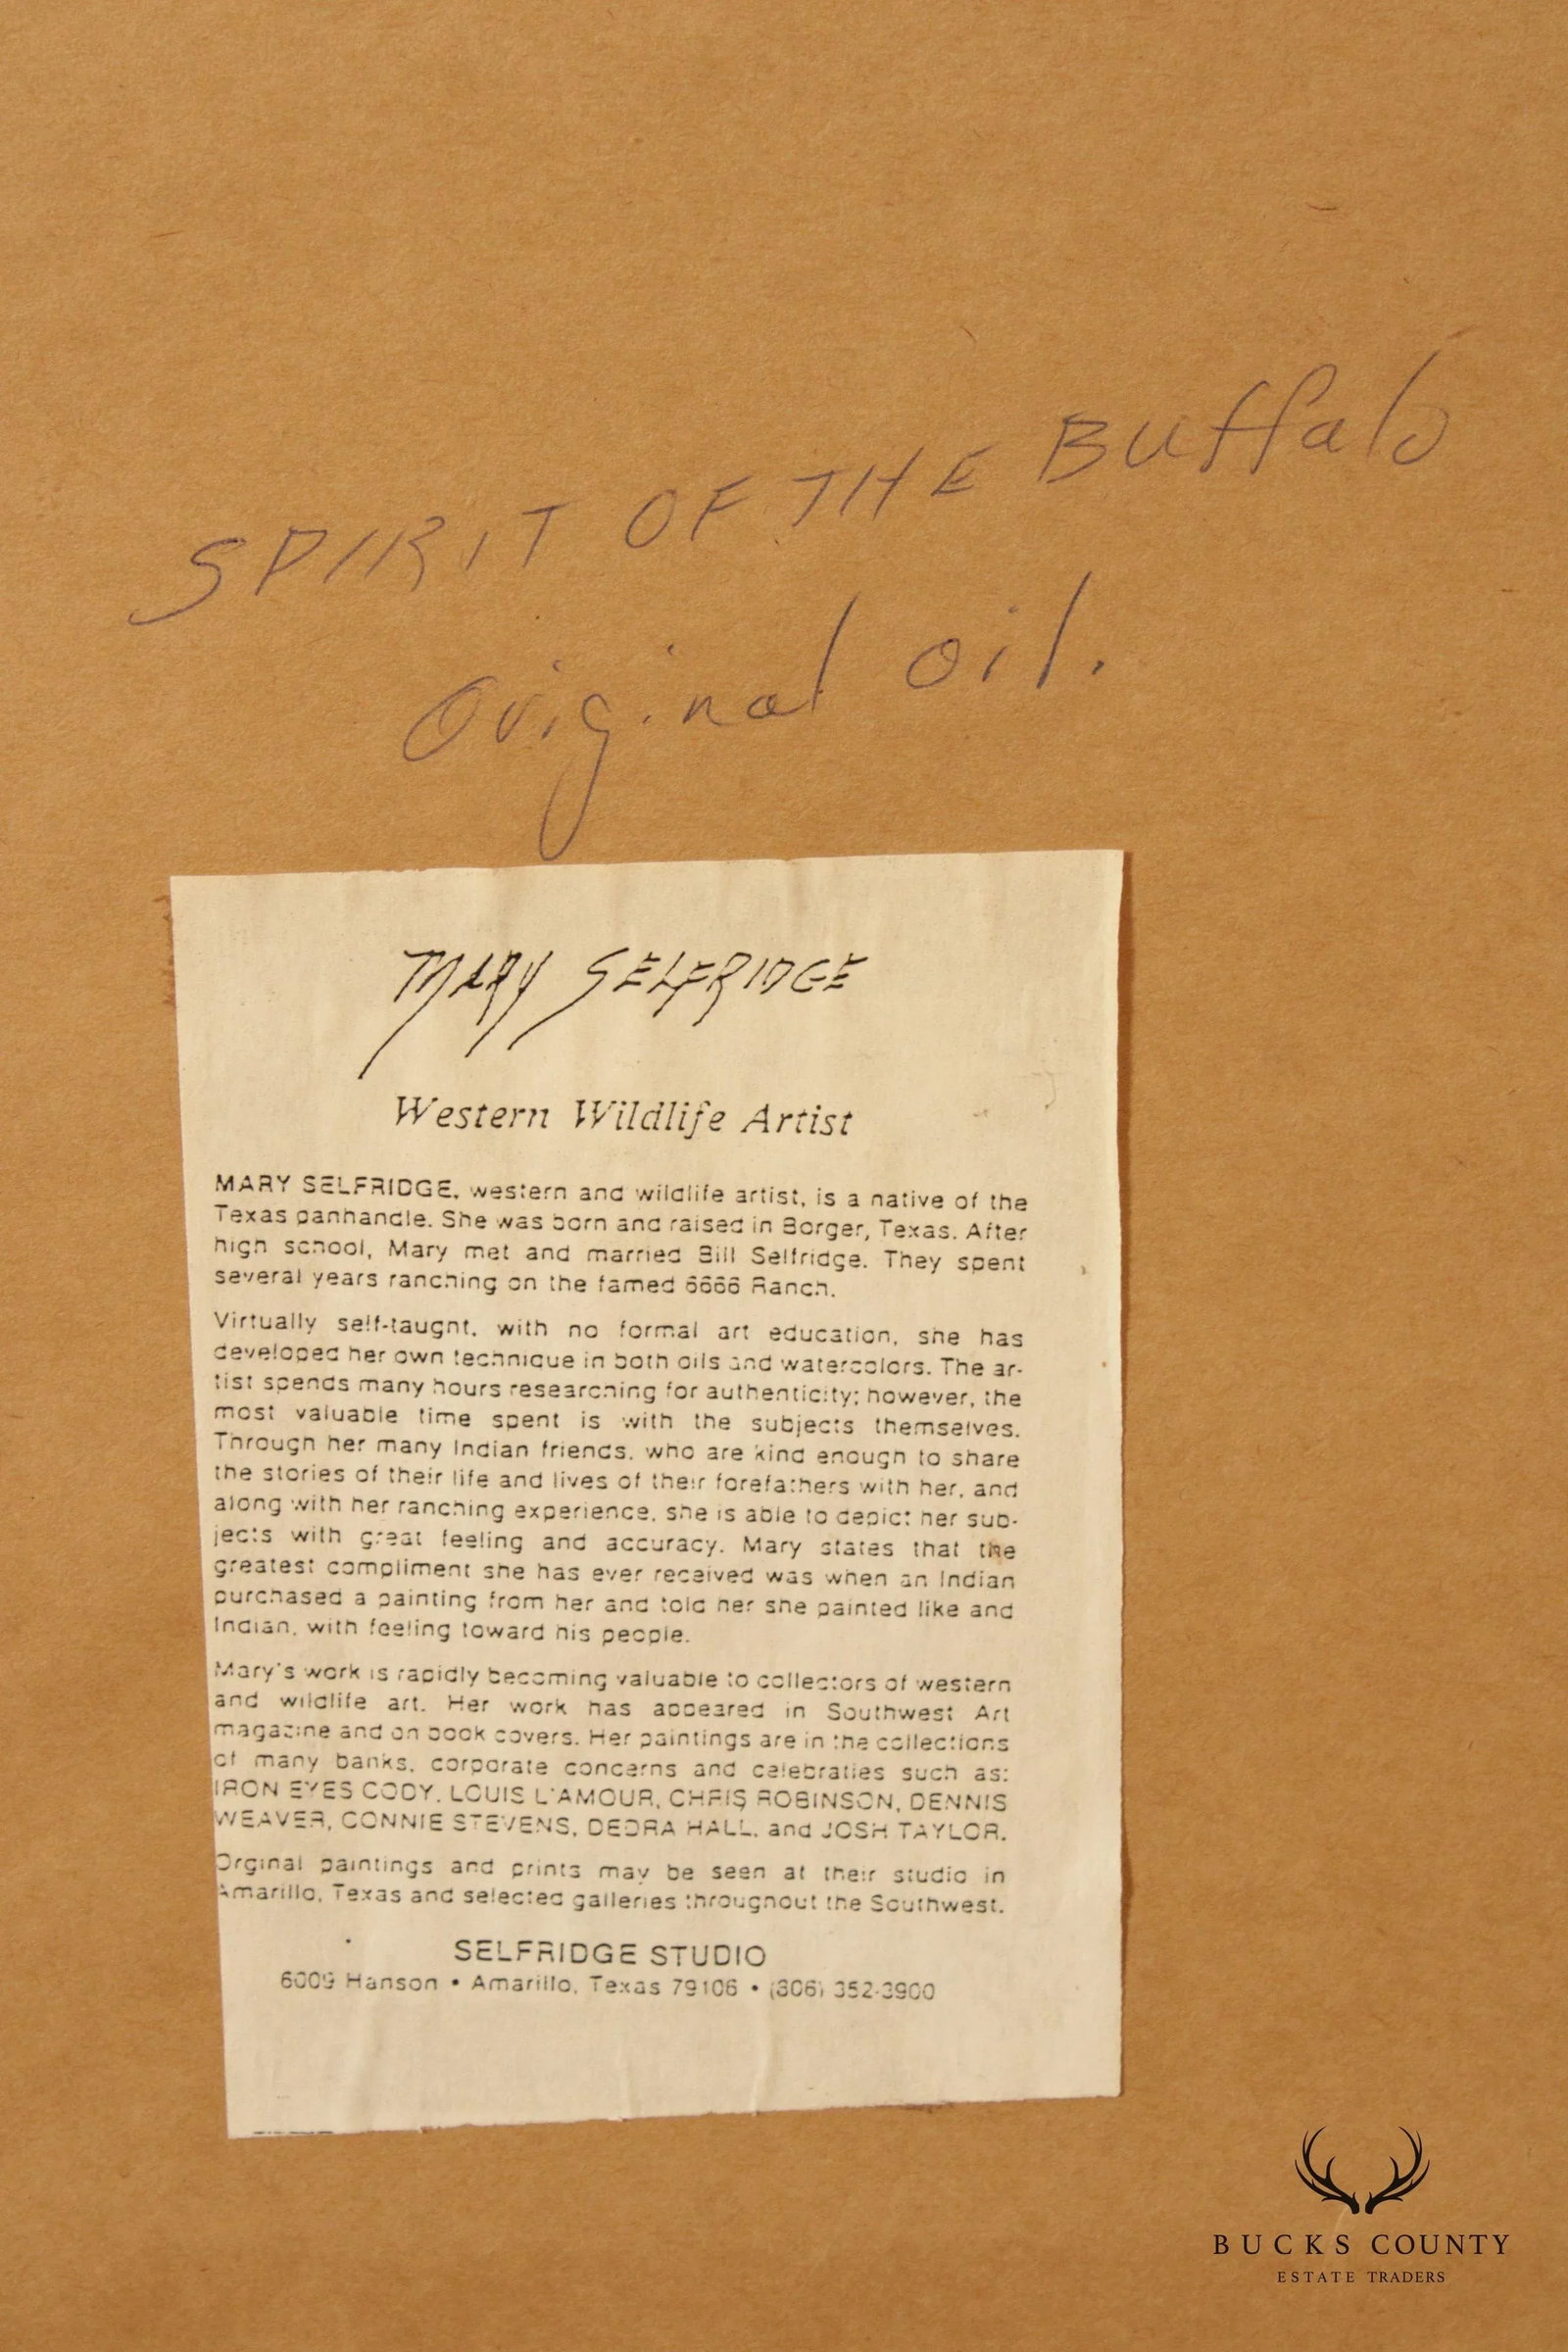 SPIRIT OF THE Buffalo
Original oil.
MARY SELFRIDGE
Western Wildlife Artist
MARY SELFRIDGE, western and wildlife artist, is a native of the
Texas panhandle. She was born and raised in Borger, Texas. After
high school, Mary met and married Bill Selfridge. They spent
several years ranching on the famed 6666 Ranch.
Virtually self-taught, with no formal art education, she has
developed her own technique in both oils and watercolors. The ar-
tist spends many hours researching for authenticity; however, the
most valuable time spent is with the subjects themselves.
Through her many Indian friends, who are kind enough to share
the stories of their life and lives of their forefathers with her, and
along with her ranching experience, she is able to depict her sub-
jects with great feeling and accuracy. Mary states that the
greatest compliment she has ever received was when an Indian
purchased a painting from her and told her she painted like and
Indian, with feeling toward his people.
Mary's work is rapidly becoming valuable to collectors of western
and wildlife art. Her work has appeared in Southwest Art
magazine and on book covers. Her paintings are in the collections
of many banks, corporate concerns and celebraties such as:
IRON EYES CODY, LOUIS L'AMOUR, CHRIS ROBINSON, DENNIS
WEAVER, CONNIE STEVENS, DEDRA HALL, and JOSH TAYLOR.
Orginal paintings and prints may be seen at their studio in
Amarillo, Texas and selected galleries throughout the Southwest.
SELFRIDGE STUDIO
6009 Hanson • Amarillo, Texas 79106 • (806) 352-3900
BUCKS COUNTY
ESTATE TRADERS